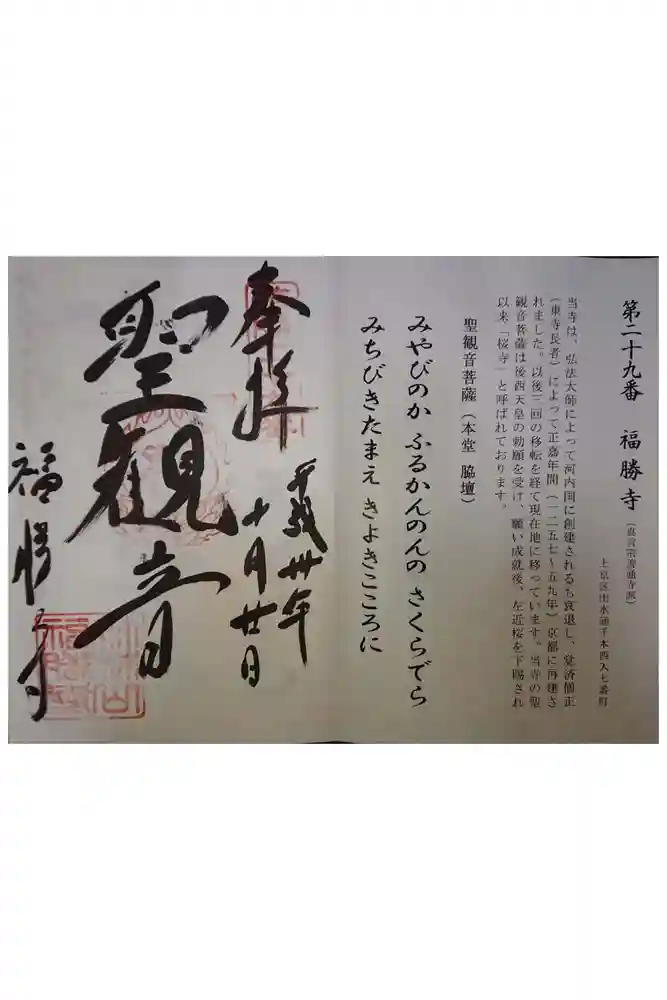 第二十九番　福勝寺（真言宗善通寺派）
上京区出水通千本西入七番町
当寺は、弘法大師によって河内国に創建されるも衰退し、覚済僧正
（東寺長者）によって正嘉年間（一二五七～五九年）京都に再建さ
れました。以後三回の移転を経て現在地に移っています。当寺の聖
観音菩薩は後西天皇の勅願を受け、願い成就後、左近桜を下賜され
以来「桜寺」と呼ばれております。
聖観音菩薩（本堂　脇壇）
みやびのか ふるかんのんの さくらでら
みちびきたまえ きよきこころに
奉拝
平成卅年
十月廿日
聖観音
福勝寺